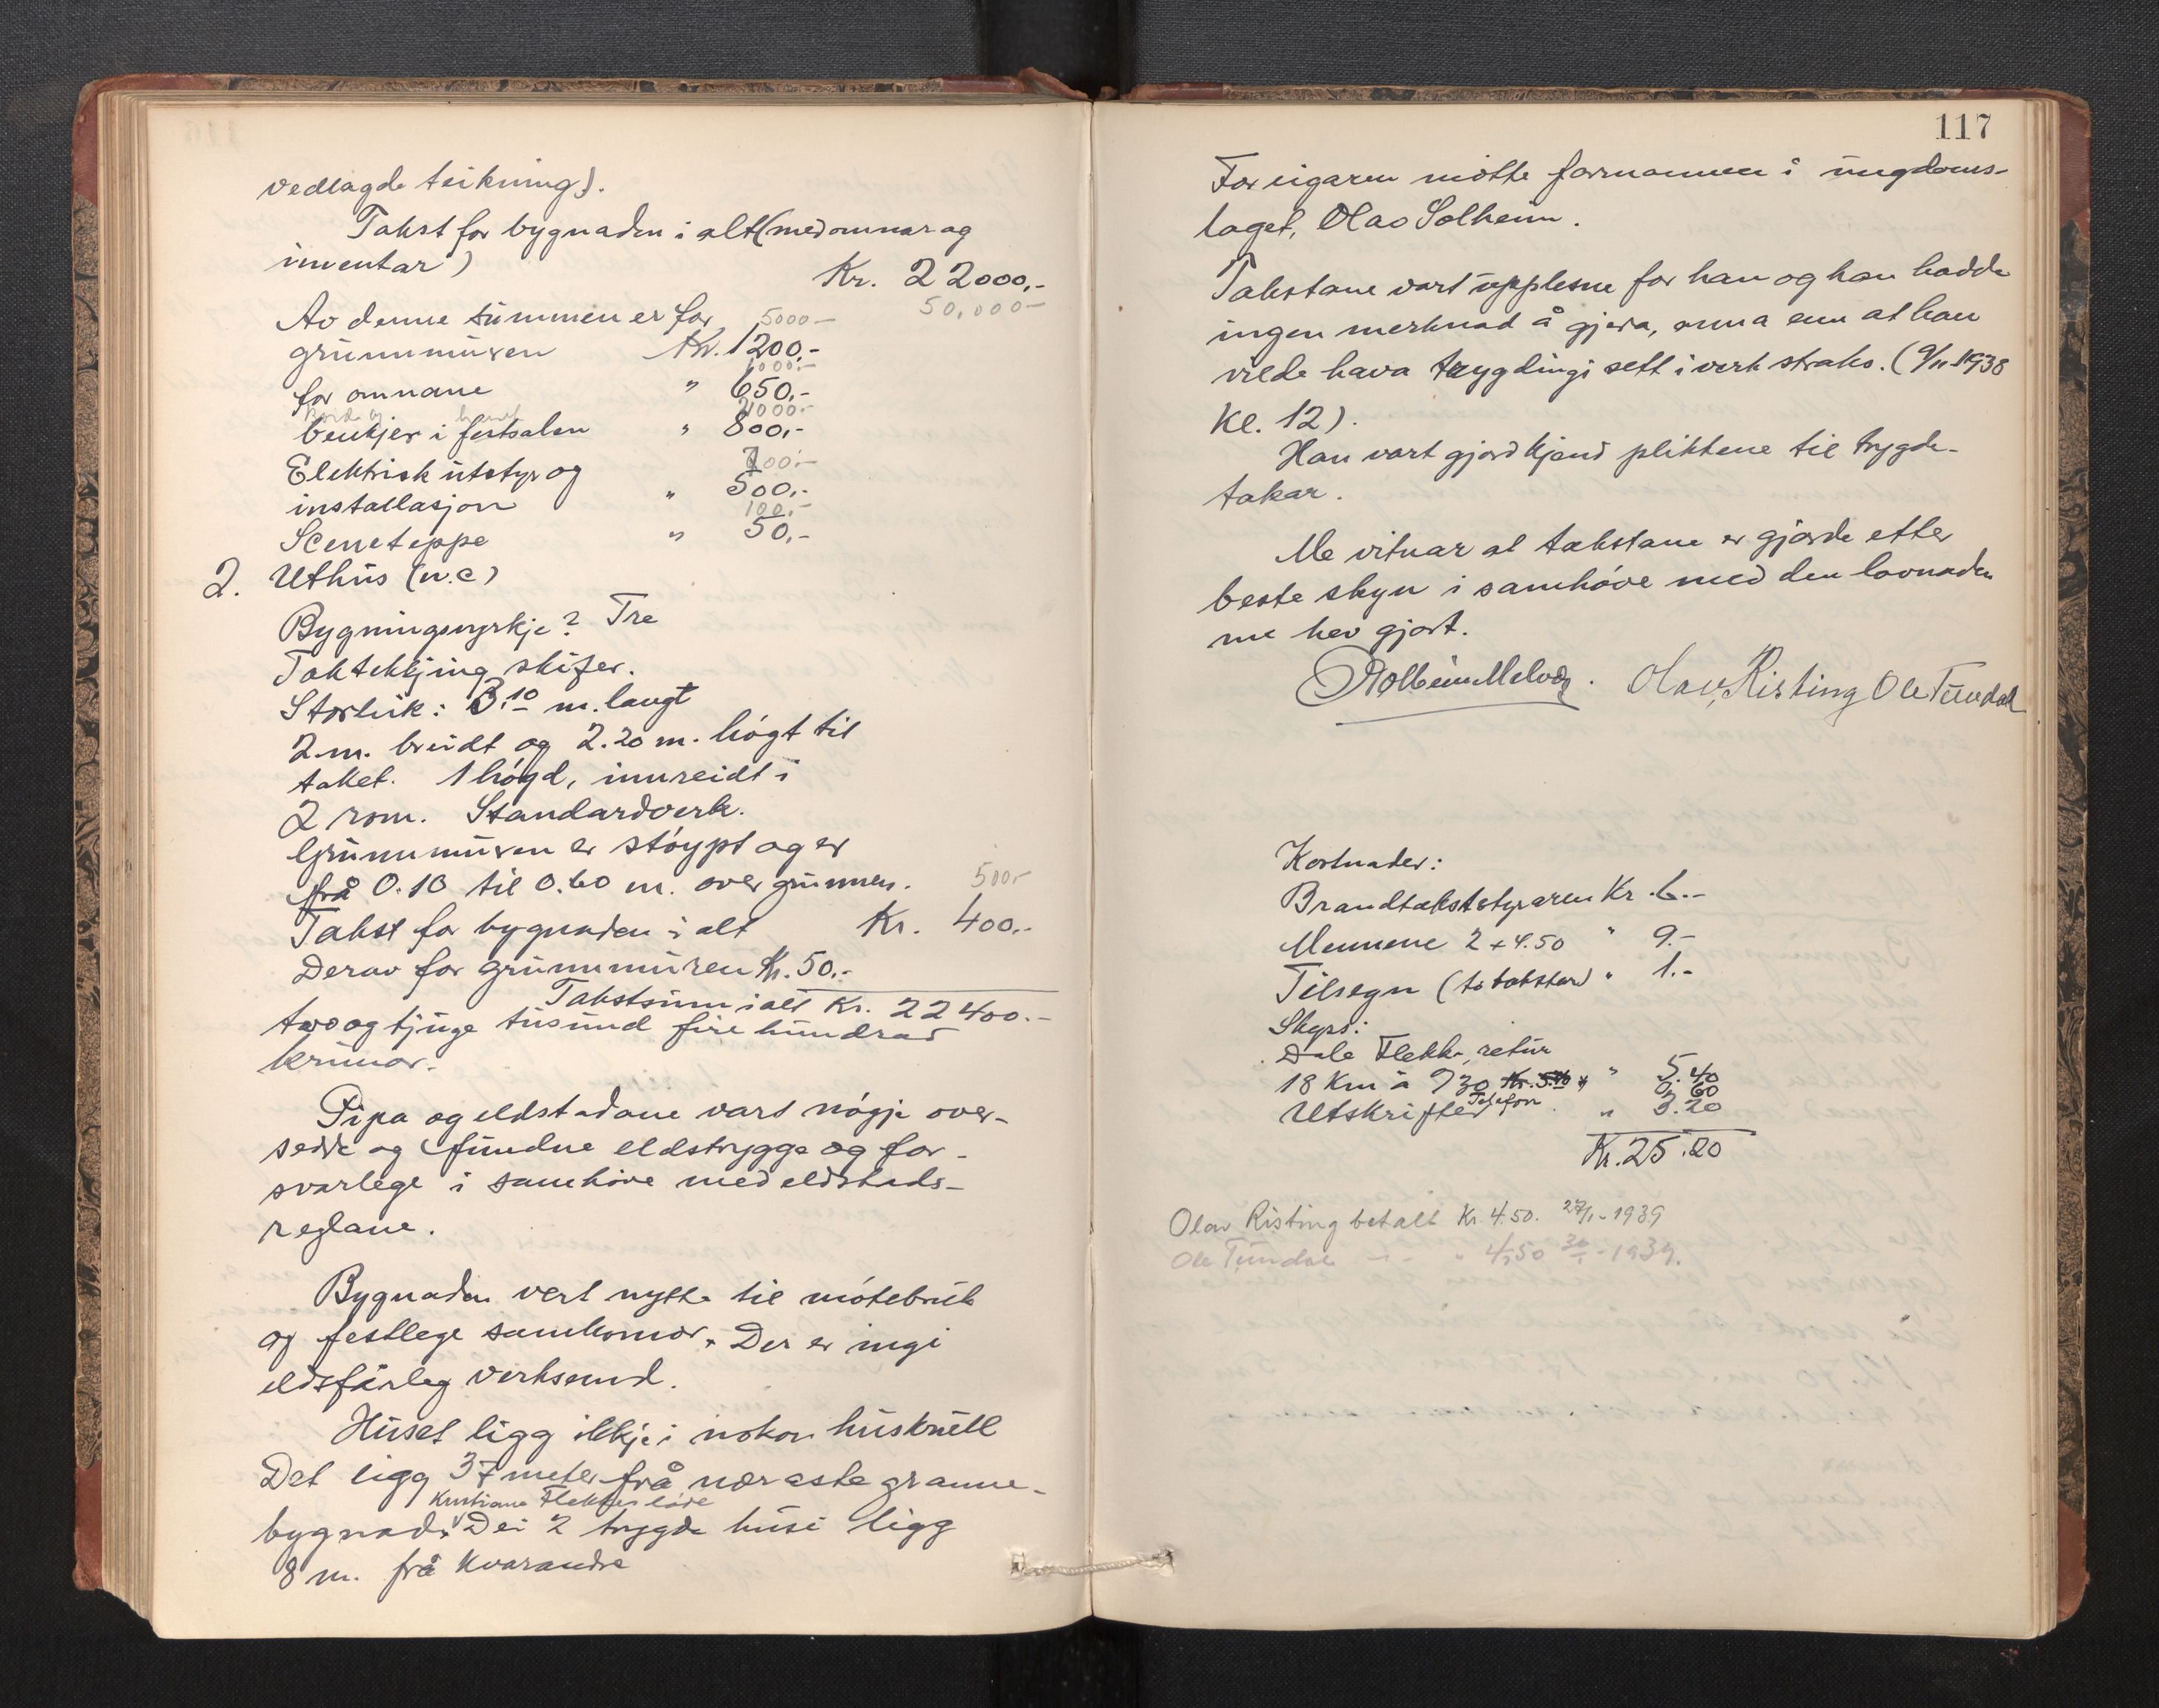 vedlagde teikning).
Takst for bygnaden i alt (med omnar og
inventar) Kr. 22000,-
50,000-
Av denne summen er for 5000-
grunnmuren Kr. 1200,-
1000.-
for omnane " 650,-
2000.-
benkjer i festsalen " 800,-
Elektrisk utstyr og 700.-
installasjon " 500,-
100,-
Sceneteppe " 50,-
2. Uthus (w.c)
Bygningsyrkje? Tre
Taktekkjing skifer.
Storleik: 3.10 m. langt
2 m. breidt og 2.20 m. högt til
taket. 1 högd, innreidt i
2 rom. Standardverk.
Grunnmuren er stöypt og er
frå 0.10 til 0.60 m. over grunnen. 500-
Takst for bygnaden i alt Kr. 400.-
Derav for grunnmuren Kr. 50.-
Takstsum i alt Kr. 22400.-
two og tjuge tusund fire hundrad
krunor.
Pipa og eldstadane vart nögje over-
sedde og fundne eldstrygge og for-
svarlege i samhöve med eldstads-
reglane.
Bygnaden vert nytta til mötebruk
og festlege samkomor. Der er ingi
eldsfårleg verksemd.
Huset ligg ikkje i nokon huskrull
Det ligg 37 meter frå næraste granne-
Kristiane Flekkes löe
bygnad. Dei 2 trygde husi ligg
8 m. frå kvarandre
117
For eigaren mötte formannen i ungdoms-
laget, Olav Solheim.
Takstane vart upplesne for han og han hadde
ingen merknad å gjera, anna enn at han
vilde hava trygdingi sett i verk straks. (9/11 1938
Kl. 12).
Han vart gjord kjend pliktene til trygde-
takar.
Me vitnar at takstane er gjorde etter
beste skyn i samhöve med den lovnaden
me hev gjort.
Olav Risting Ole Tundal
Kostnader:
Brandtakststyraren Kr. 6.-
Mennene 2 + 4.50 " 9.-
Tilsegn (to takstar) " 1.-
Skyss:
Dale Flekke, retur
18 Km à 30 Kr. 5.40 " 5.40
Telefon 0.60
Utskrifter " 3.20
Kr. 25.20
Olav Risting betalt Kr. 4.50. 27/1-1939
Ole Tundal -"- " 4.50 30/1-1939.